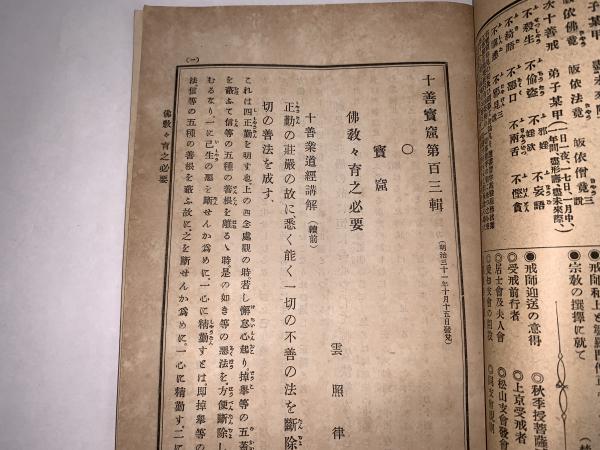 子某甲 盡未來際
皈依佛竟 皈依法竟 皈依僧竟 三說
次十善戒 弟子某甲(一日一夜、一七日、一月中、一年間、盡形壽、盡未來際)
不殺生 不偷盜 不邪婬 不妄語
不綺語 不惡口 不兩舌 不慳貪
宗教の撰擇に就て
●戒師迎送の意得
◎秋季授菩薩
●受戒前行者
◎上京受戒者
●居士會及夫人會
◎松山支會發會
十善寶窟第百三輯
(明治三十一年十月十五日發兌)
○
寶窟
佛敎々育之必要
雲照律
十善業道經講解(續前)
正勤の莊嚴の故に、悉く能く一切の不善の法を斷除
切の善法を成す、
これは四正勤を明す也上の四念處觀の時、若し懈怠心起り、掉擧等の五蓋
を蔽ふて信等の五種の善根を離るゝ時、是の如き等の惡法を、方便斷除し
むるなり、一に已生の惡を斷せんか爲めに、一心に精勤すとは、即掉擧等の
法信等の五種の善根を蔽ふ故に、之を斷せんか爲めに、一心に精勤す、二に
佛敎々育之必要
(一)